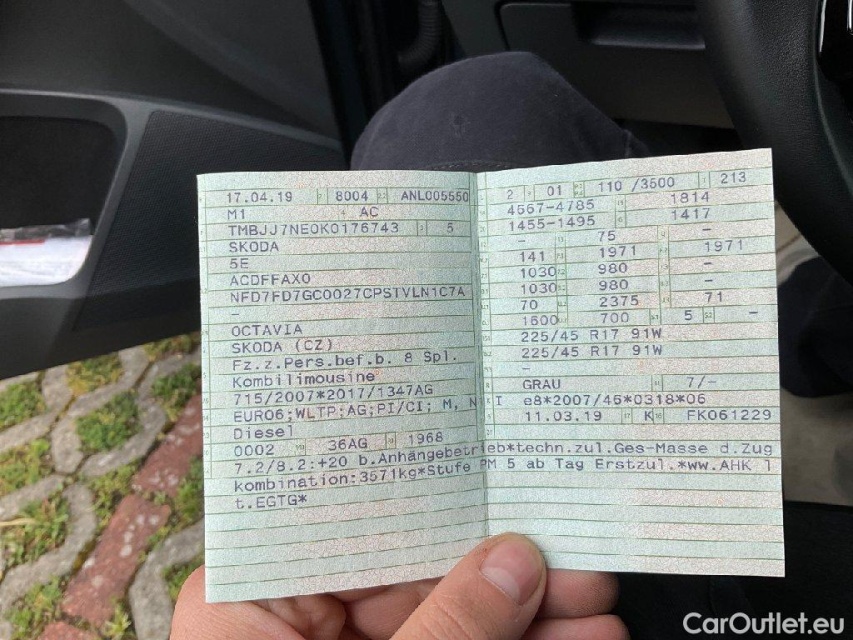 17.04.19 8004 ANL005550
M1 AC
TMBJJ7NE0K0176743 5
SKODA
5E
ACDFFAX0
NFD7FD7GC0027CPSTVLN1C7A
-
OCTAVIA
SKODA (CZ)
Fz.z.Pers.bef.b. 8 Spl.
Kombilimousine
715/2007*2017/1347AG
EURO6;WLTP;AG;PI/CI; M, N I
Diesel
0002 36AG 1968
2 01 110 /3500 213
4567-4785 1814
1455-1495 1417
- 75 -
141 1971 1971
1030 980 -
1030 980 -
70 2375 71
1600 700 5 -
225/45 R17 91W
225/45 R17 91W
-
GRAU 7/-
e8*2007/46*0318*06
11.03.19 K FK061229
7.2/8.2:+20 b.Anhängebetrieb*techn.zul.Ges-Masse d.Zug
kombination:3571kg*Stufe PM 5 ab Tag Erstzul.*ww.AHK l
t.EGTG*
CarOutlet.eu